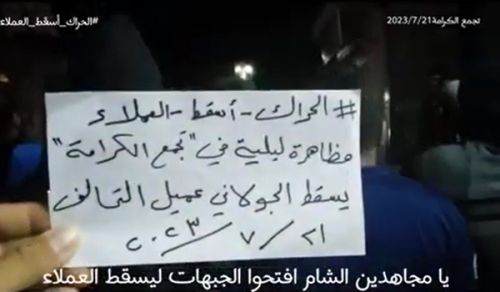 #الحراك_أسقط_العملاء
تجمع الكرامة2023/7/21
# الحراك - أسقط - العملاء
مظاهرة ليلية في "تجمع الكرامة"
يسقط الجولاني عميل التحالف
٢١ / ٧ / ٢٠٢٣
يا مجاهدين الشام افتحوا الجبهات ليسقط العملاء